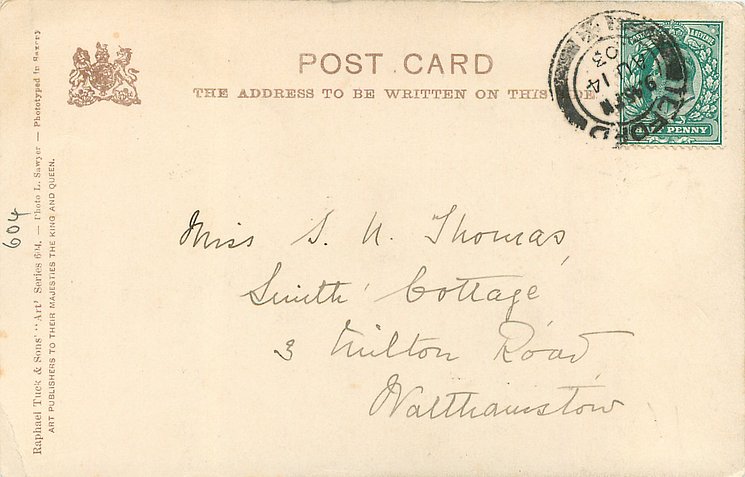 POST CARD
THE ADDRESS TO BE WRITTEN ON THIS
ILFORD
AU 14
03
PENNY
Miss S. N. Thomas,
Smith Cottage
3 Milton Road,
Walthamstow
604
Raphael Tuck & Sons' "Art" Series 604. — Photo L. Sawyer — Phototyped in Saxony
ART PUBLISHERS TO THEIR MAJESTIES THE KING AND QUEEN.